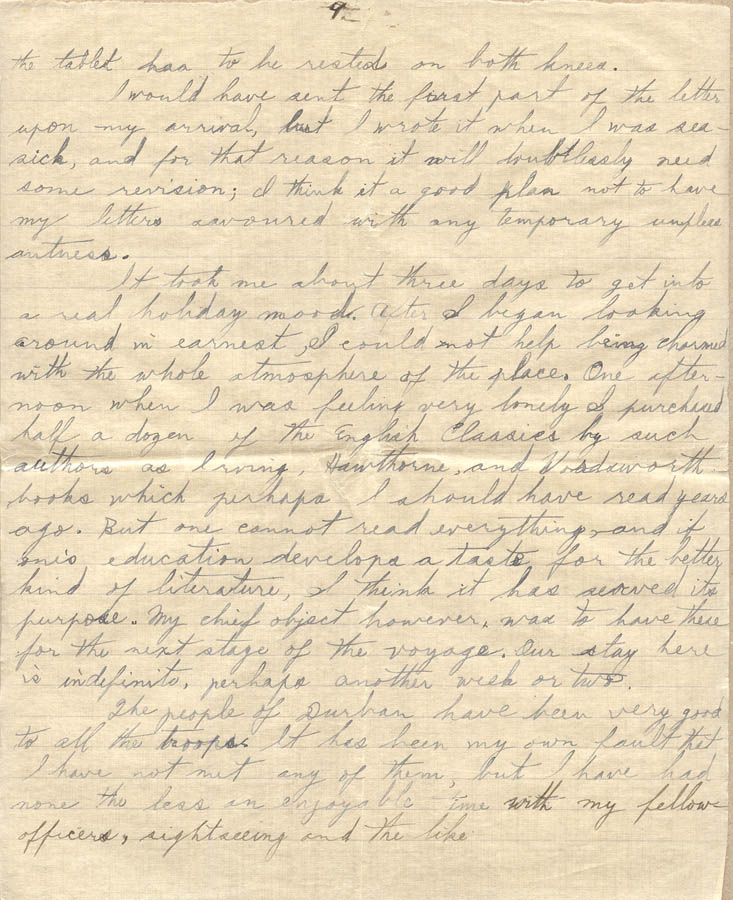 9
the tablet has to be rested on both knees.
I would have sent the first part of the letter
upon my arrival, but I wrote it when I was sea-
sick, and for that reason it will doubtlessly need
some revision; I think it a good plan not to have
my letters savoured with any temporary unpleas
antness.
It took me about three days to get into
a real holiday mood. After I began looking
around in earnest, I could not help being charmed
with the whole atmosphere of the place. One after-
noon when I was feeling very lonely I purchased
half a dozen of the English Classics by such
authors as Irving, Hawthorne, and Wordsworth -
books which perhaps I should have read years
ago. But one cannot read everything, and if
one's education develops a taste for the better
kind of literature, I think it has served its
purpose. My chief object however, was to have these
for the next stage of the voyage. Our stay here
is indefinite, perhaps another week or two.
The people of Durban have been very good
to all the troops. It has been my own fault that
I have not met any of them, but I have had
none the less an enjoyable time with my fellow
officers, sightseeing and the like